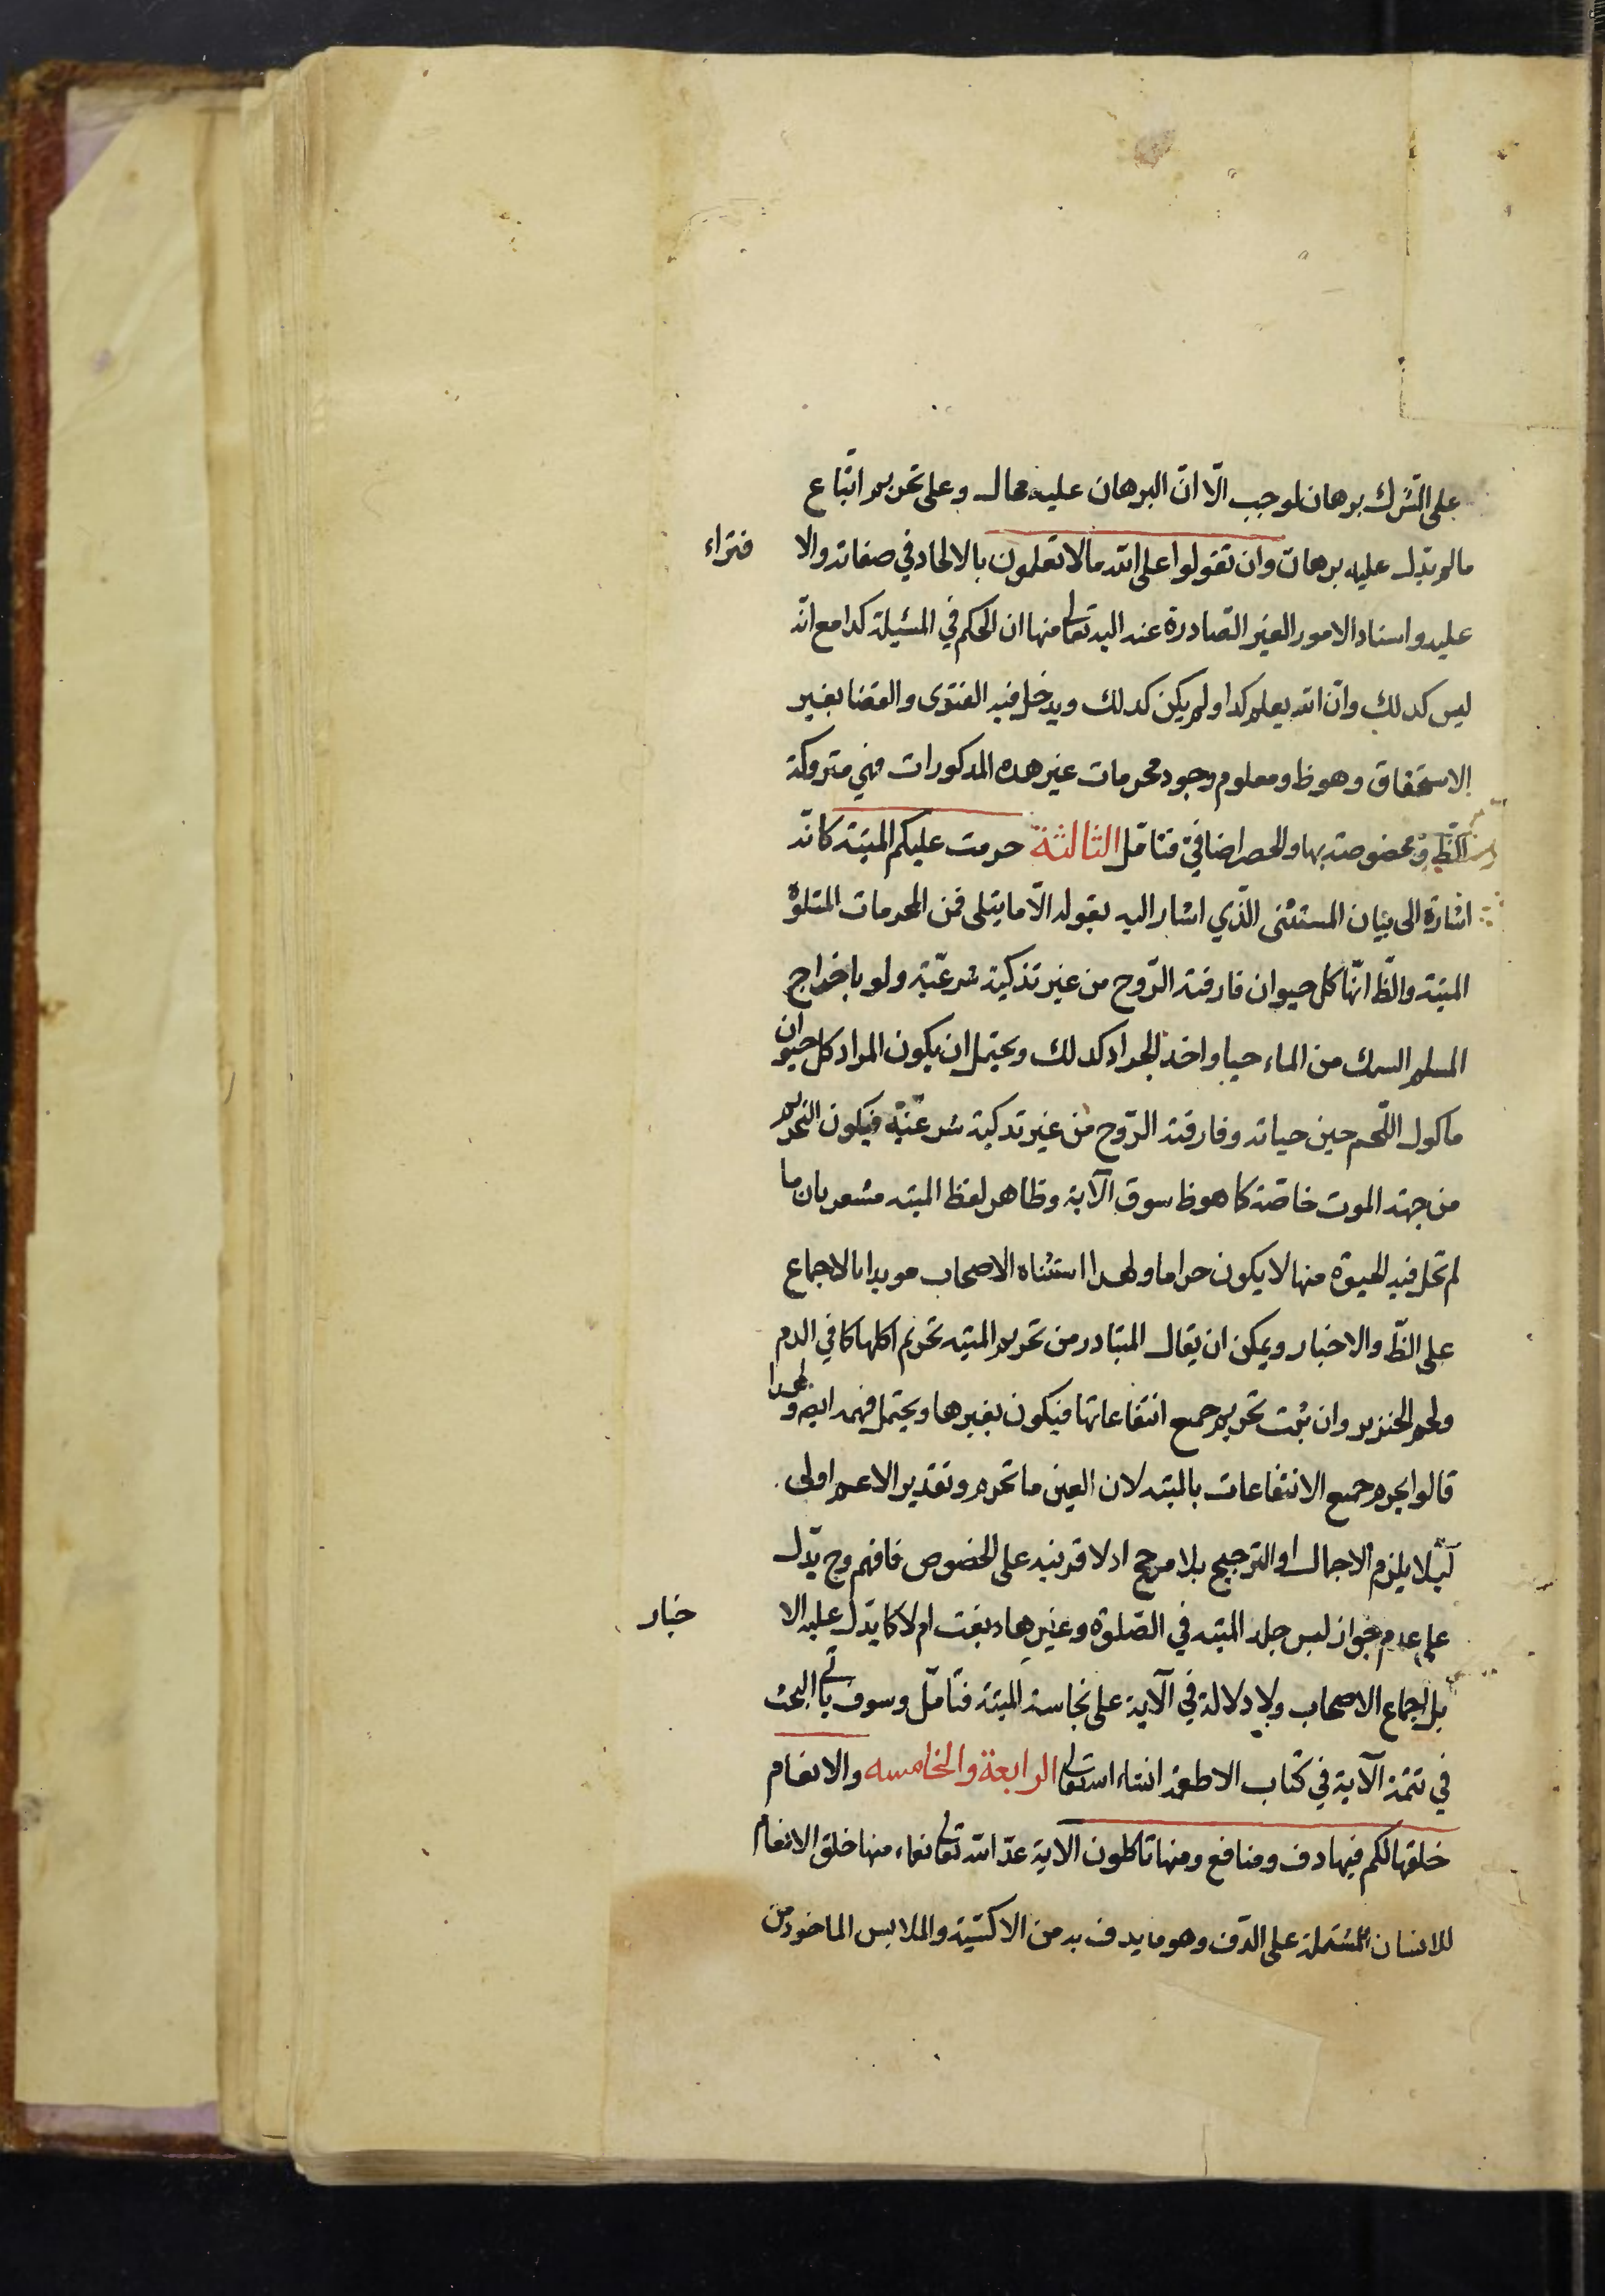 على الشرك برهان لوجب الّا انّ البرهان عليه محال وعلى تحريم اتّباع
مالم يدل عليه برهان وان تقولوا على الله مالا تعلمون بالالحاد في صفاته والا فتراء
عليه واسناد الامور الغير الصّادرة عنه اليه تعالى منها ان الحكم في المسئلة كذا مع انّه
ليس كذلك وانّ الله يعلم كذا ولم يكن كذلك ويدخل فيه الفتوى والقضا بغير
الاستحقاق وهو ظ ومعلوم وجود محرمات غير هذه المذكورات فهي متروكة
الظ او مخصوصة بها والحصر اضافيّ فتامّل الثالثة حرمت عليكم الميتة كانّه
اشارة الى بيان المستثنى الّذي اشار اليه بقوله الّا ما يتلى فمن المحرمات المتلوّة
الميتة والظّ انّها كل حيوان فارقته الرّوح من غير تذكية شرعيّة ولو باخراج
المسلم السمك من الماء حيا واخذ الجراد كذلك ويحتمل ان يكون المراد كل حيوان
ماكول اللّحم حين حياته وفارقته الرّوح من غير تذكية شرعيّة فيكون التحريم
من جهة الموت خاصّة كما هو ظ سوق الآية وظاهر لفظ الميته مشعر بان ما
لم تحل فيه الحيوة منها لا يكون حراما ولهذا استثناه الاصحاب مويدا بالاجماع
على الظّ والاخبار ويمكن ان يقال المتبادر من تحريم الميته تحريم اكلها كما في الدم
ولحم الخنزير وان ثبت تحريم جميع انتفاعاتها فيكون بغيرها ويحتمل فهمه ايضا ولهذا
قالوا يحرم جميع الانتفاعات بالميته لان العين ما تحرم وتقدير الاعم اولى
لئلا يلزم الاجمال او الترجيح بلا مرجح اذ لا قرينه على الخصوص فافهم وح يدّل
على عدم جواز لبس جلد الميته في الصّلوة وغيرها دبغت ام لا كما يدّل عليه الا خبار
بل اجماع الاصحاب ولا دلالة في الآية على نجاسة الميتة فتامّل وسوف ياتي البحث
في تتمّة الآية في كتاب الاطعمة انشاء الله تعالى الرابعة والخامسه والانعام
خلقها لكم فيها دف ومنافع ومنها تاكلون الآية عدّ الله تعالى نعماء منها خلق الانعام
للانسان المشتملة على الدّف وهو ما يدف به من الاكسّية والملابس الماخوذ من